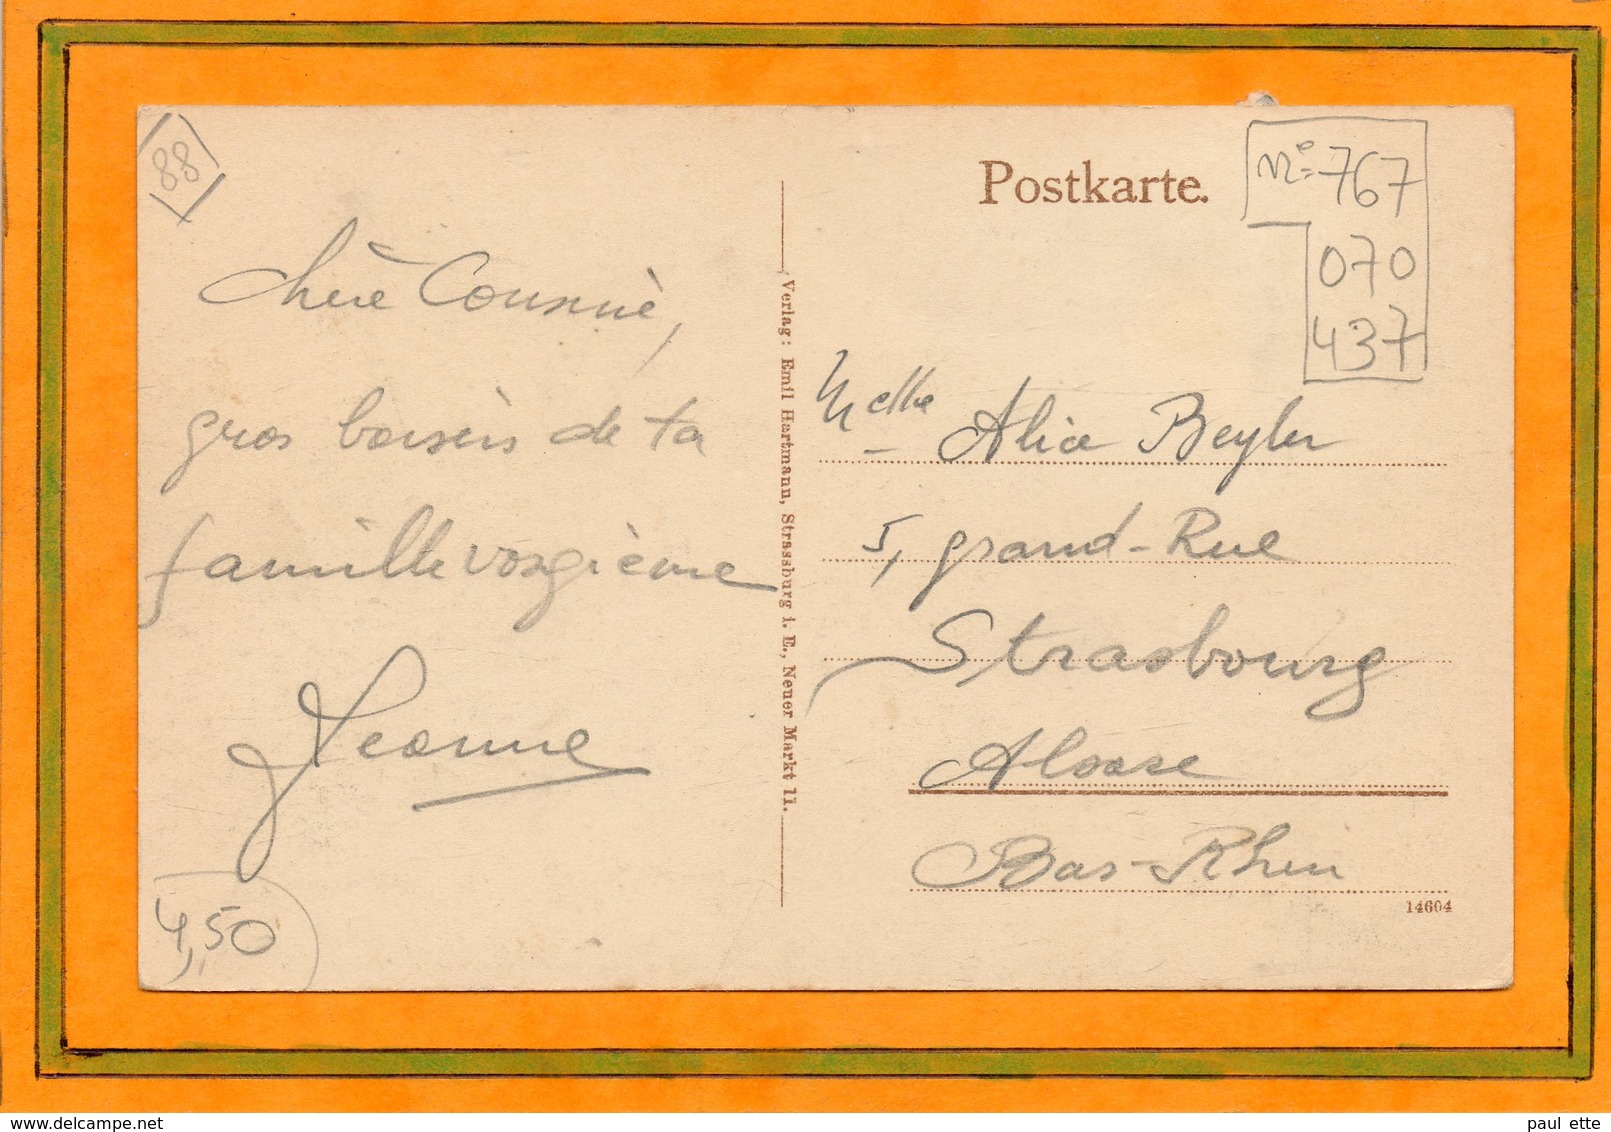 88
Chère Cousine,
gros baisers de ta
famille vosgienne
Jeanne
4,50
Verlag: Emil Hartmann, Strassburg i. E., Neuer Markt 11.
Postkarte.
N° 767
070
437
Melle Alice Beyler
5, grand-Rue
Strasbourg
Alsace
Bas-Rhin
14604
delcampe.net
paul ette